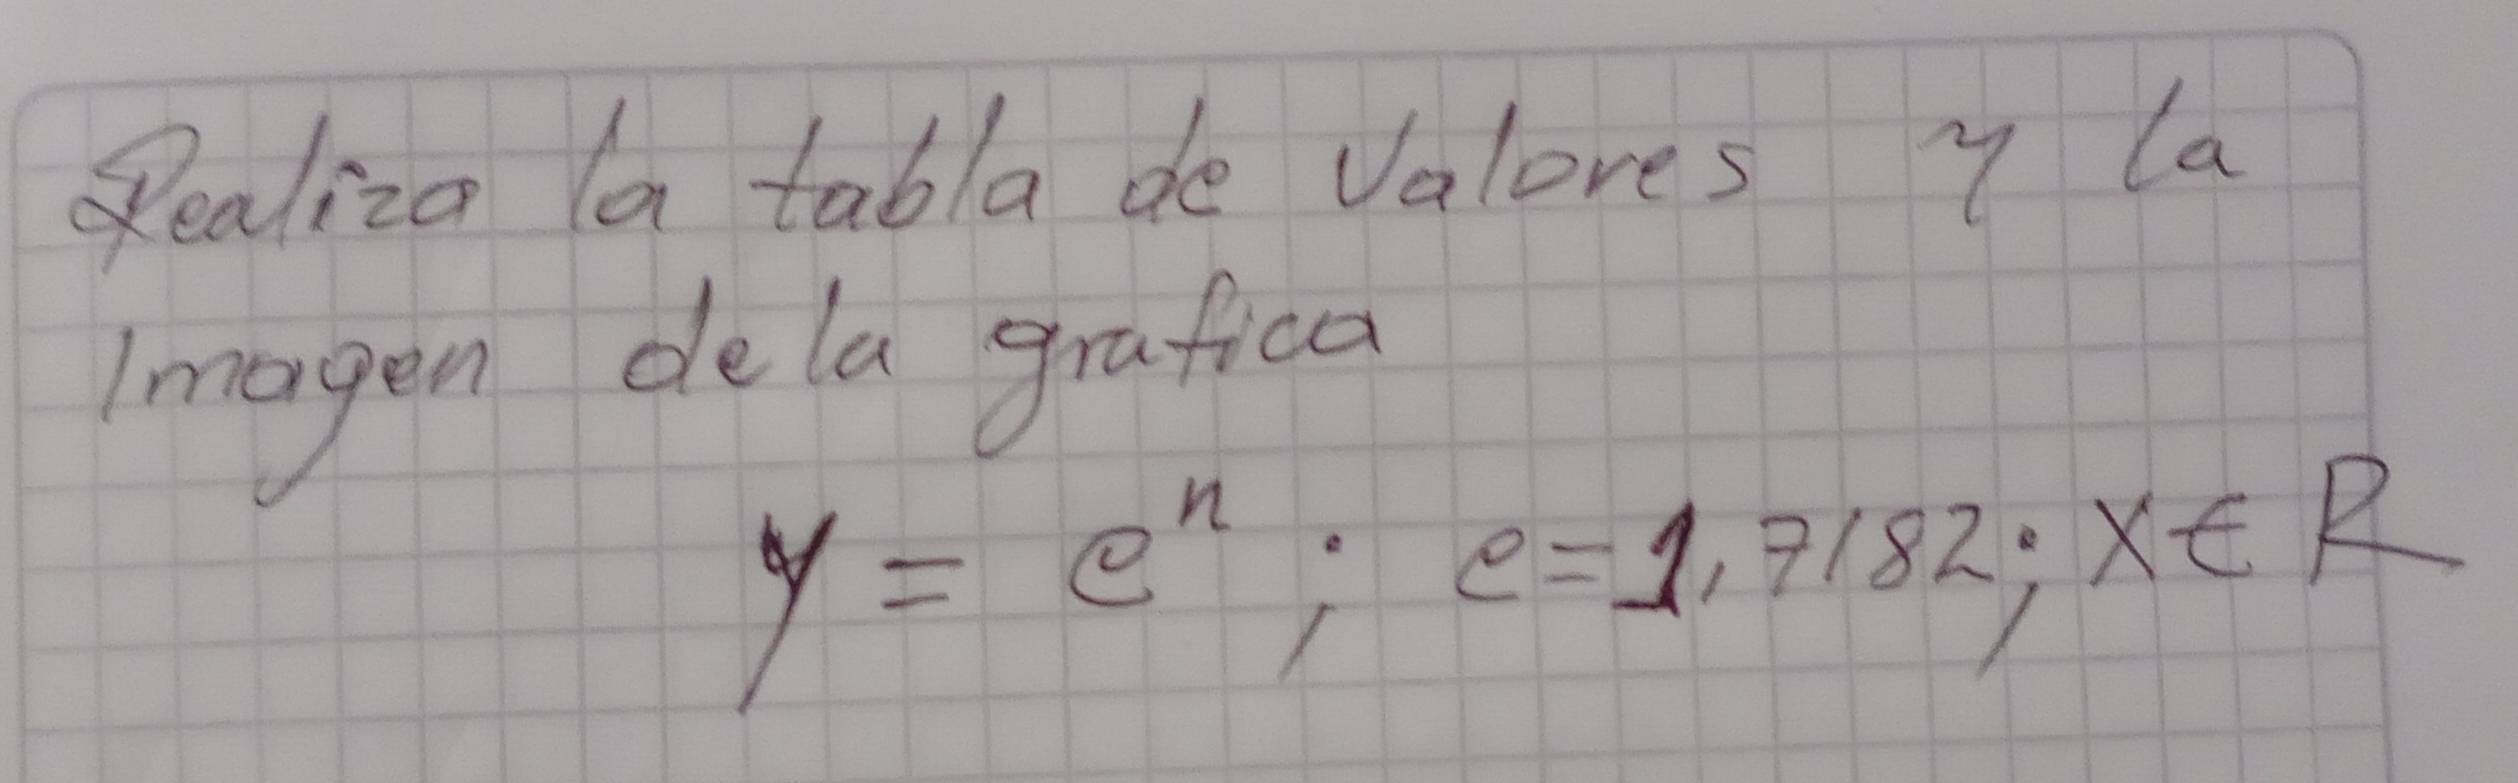 Realiza la tabla de Valores y la
Imagen de la grafica
y = e^n ; e = 1,7182; X ∈ R